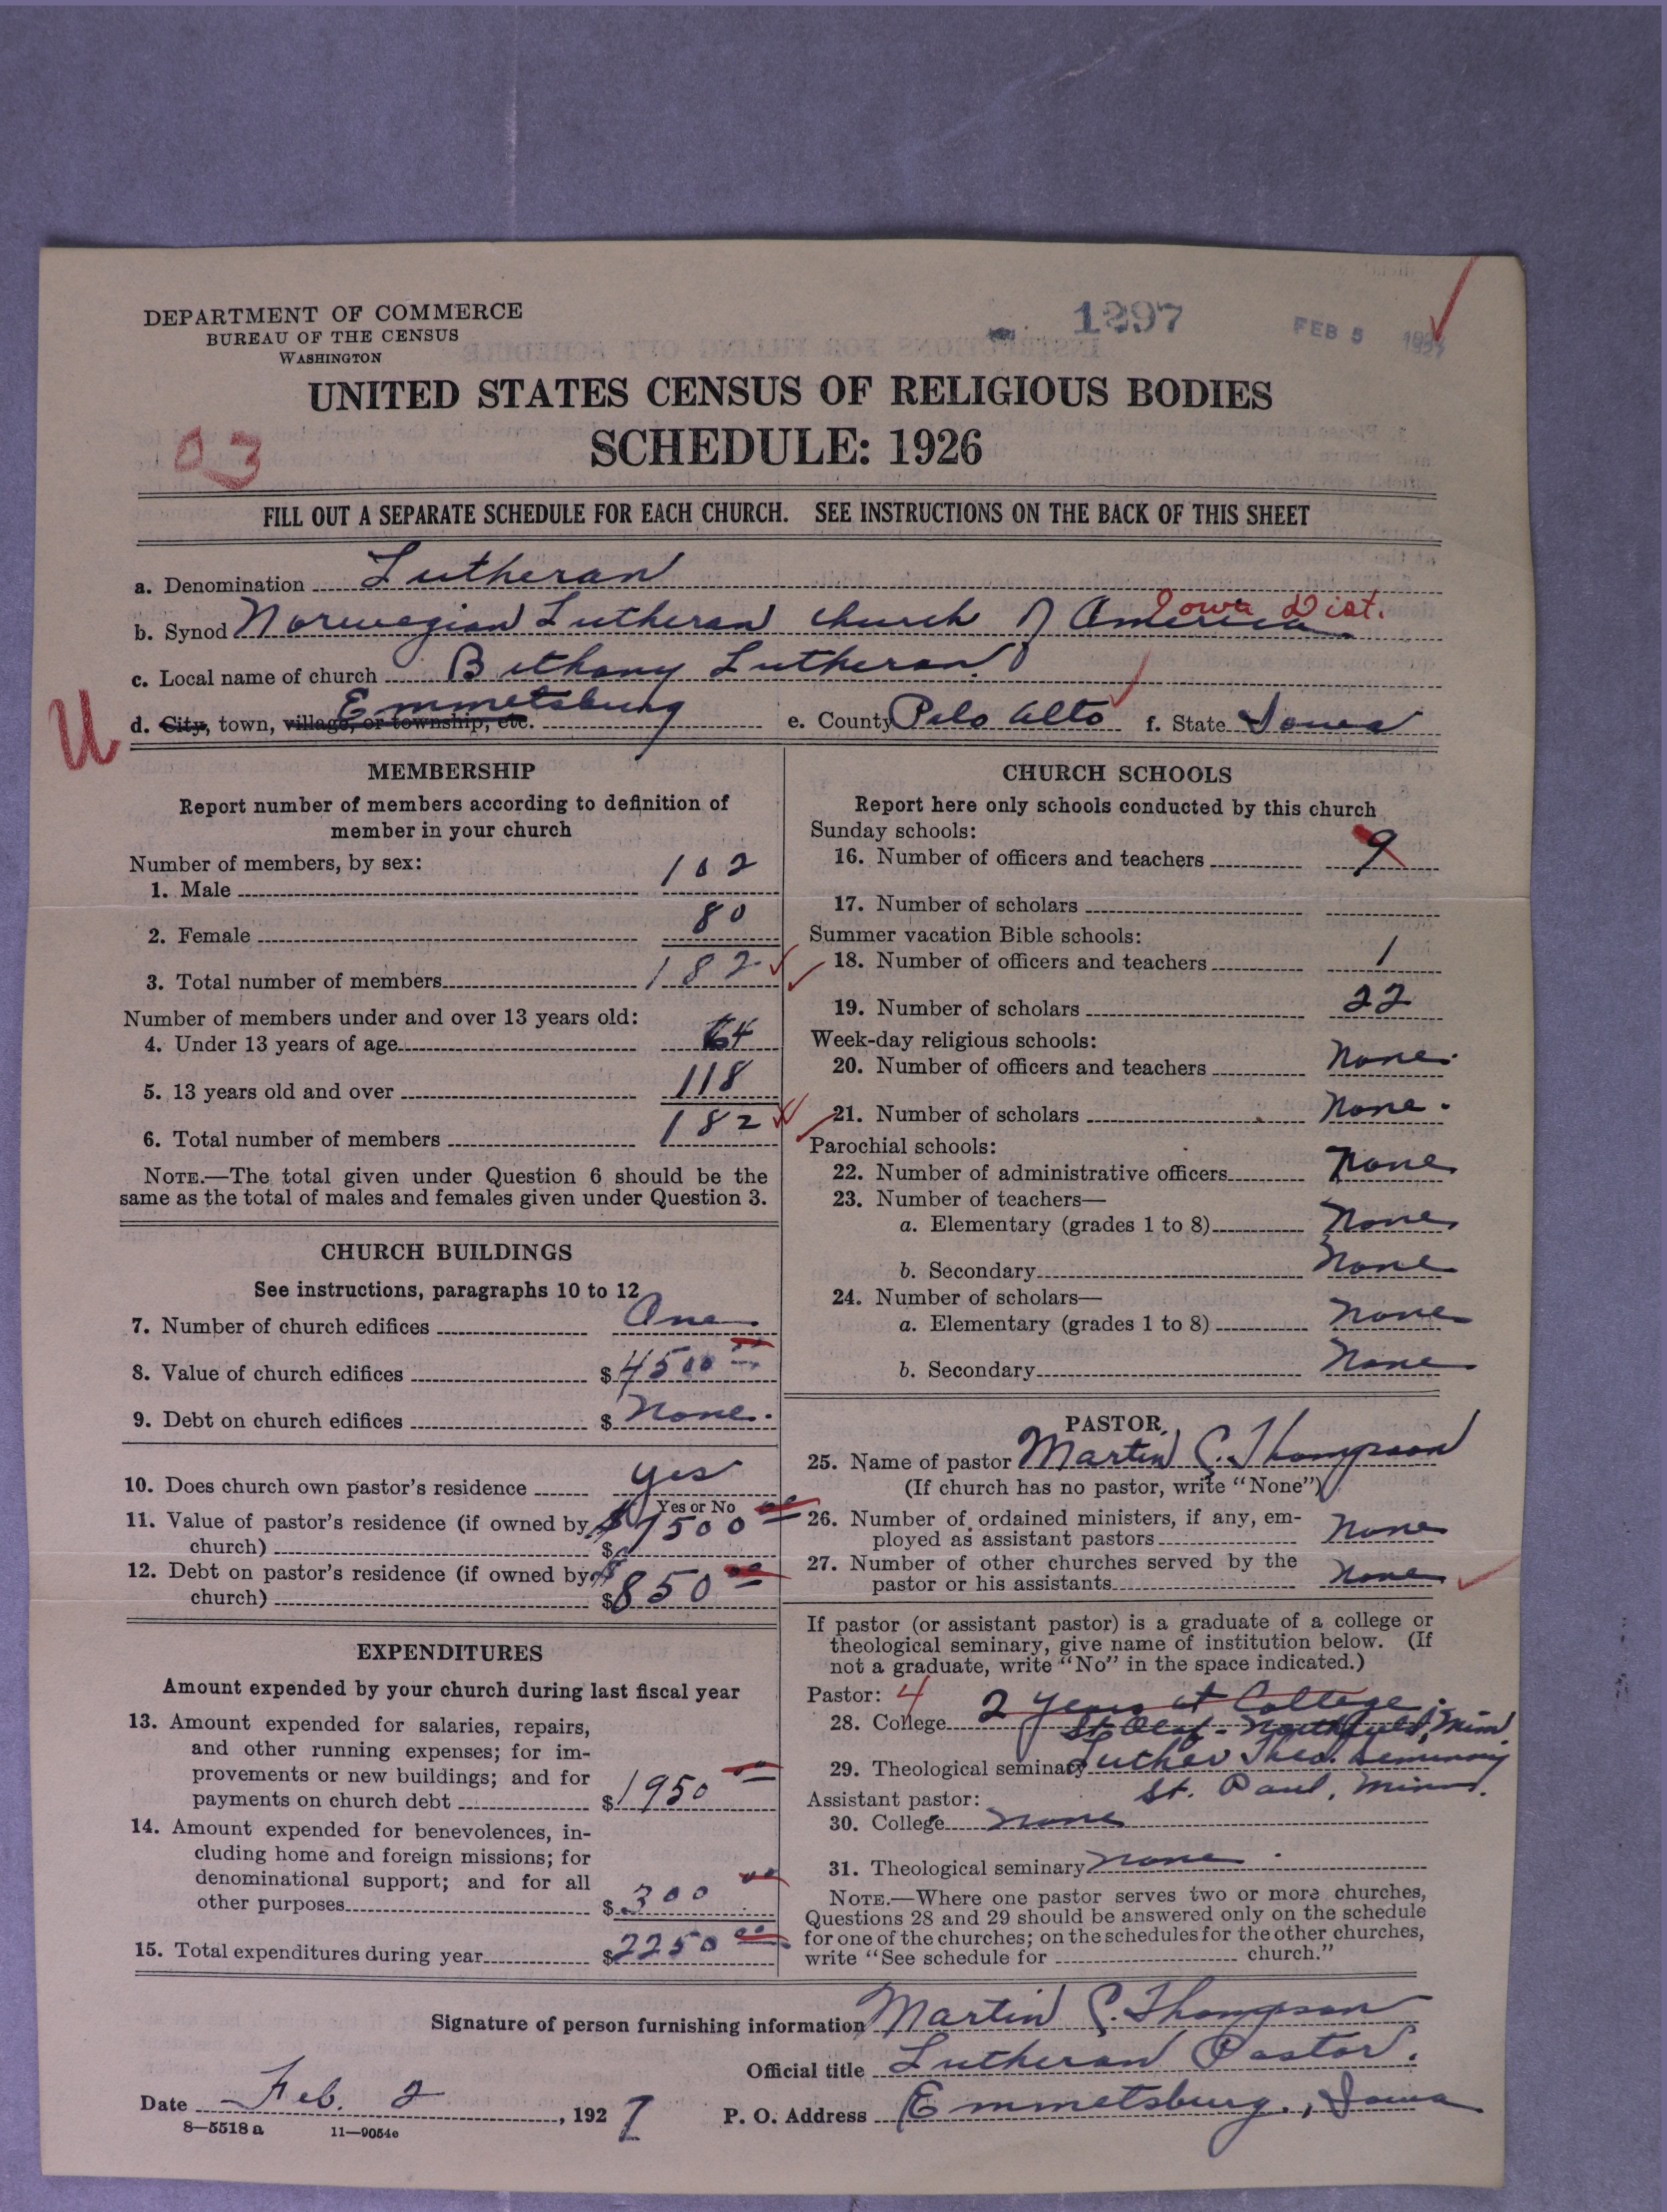 DEPARTMENT OF COMMERCE
BUREAU OF THE CENSUS
WASHINGTON
1297
FEB 5 1927
UNITED STATES CENSUS OF RELIGIOUS BODIES
SCHEDULE: 1926
03
FILL OUT A SEPARATE SCHEDULE FOR EACH CHURCH. SEE INSTRUCTIONS ON THE BACK OF THIS SHEET
a. Denomination Lutheran
Iowa Dist.
b. Synod Norwegian Lutheran church of America
c. Local name of church Bethany Lutheran
U
d. City, town, village, or township, etc. Emmetsburg e. County Palo Alto f. State Iowa
MEMBERSHIP
Report number of members according to definition of
member in your church
Number of members, by sex:
1. Male 102
2. Female 80
3. Total number of members 182
Number of members under and over 13 years old:
4. Under 13 years of age 64
5. 13 years old and over 118
6. Total number of members 182
NOTE.—The total given under Question 6 should be the
same as the total of males and females given under Question 3.
CHURCH BUILDINGS
See instructions, paragraphs 10 to 12
7. Number of church edifices One
8. Value of church edifices $4500 00
9. Debt on church edifices $ None.
10. Does church own pastor's residence yes
Yes or No
11. Value of pastor's residence (if owned by
church) $ 7500 00
12. Debt on pastor's residence (if owned by
church) $ 850 00
EXPENDITURES
Amount expended by your church during last fiscal year
13. Amount expended for salaries, repairs,
and other running expenses; for im-
provements or new buildings; and for
payments on church debt $1950 00
14. Amount expended for benevolences, in-
cluding home and foreign missions; for
denominational support; and for all
other purposes $ 300 00
15. Total expenditures during year $2250 00
CHURCH SCHOOLS
Report here only schools conducted by this church
Sunday schools:
16. Number of officers and teachers 9
17. Number of scholars
Summer vacation Bible schools:
18. Number of officers and teachers 1
19. Number of scholars 22
Week-day religious schools:
20. Number of officers and teachers None.
21. Number of scholars None.
Parochial schools:
22. Number of administrative officers None
23. Number of teachers—
a. Elementary (grades 1 to 8) None
b. Secondary None
24. Number of scholars—
a. Elementary (grades 1 to 8) None
b. Secondary None
PASTOR
25. Name of pastor Martin C. Thompson
(If church has no pastor, write "None")
26. Number of ordained ministers, if any, em-
ployed as assistant pastors None
27. Number of other churches served by the
pastor or his assistants None
If pastor (or assistant pastor) is a graduate of a college or
theological seminary, give name of institution below. (If
not a graduate, write "No" in the space indicated.)
Pastor: 4
28. College 2 years at College.
St. Olaf - Northfield, Minn.
29. Theological seminary Luther Theo. Seminary
St. Paul, Minn.
Assistant pastor:
30. College none
31. Theological seminary none.
NOTE.—Where one pastor serves two or more churches,
Questions 28 and 29 should be answered only on the schedule
for one of the churches; on the schedules for the other churches,
write "See schedule for church."
Signature of person furnishing information Martin C. Thompson
Official title Lutheran Pastor.
Date Feb. 2, 1927 P. O. Address Emmetsburg, Iowa
8—5518 a 11—9054e